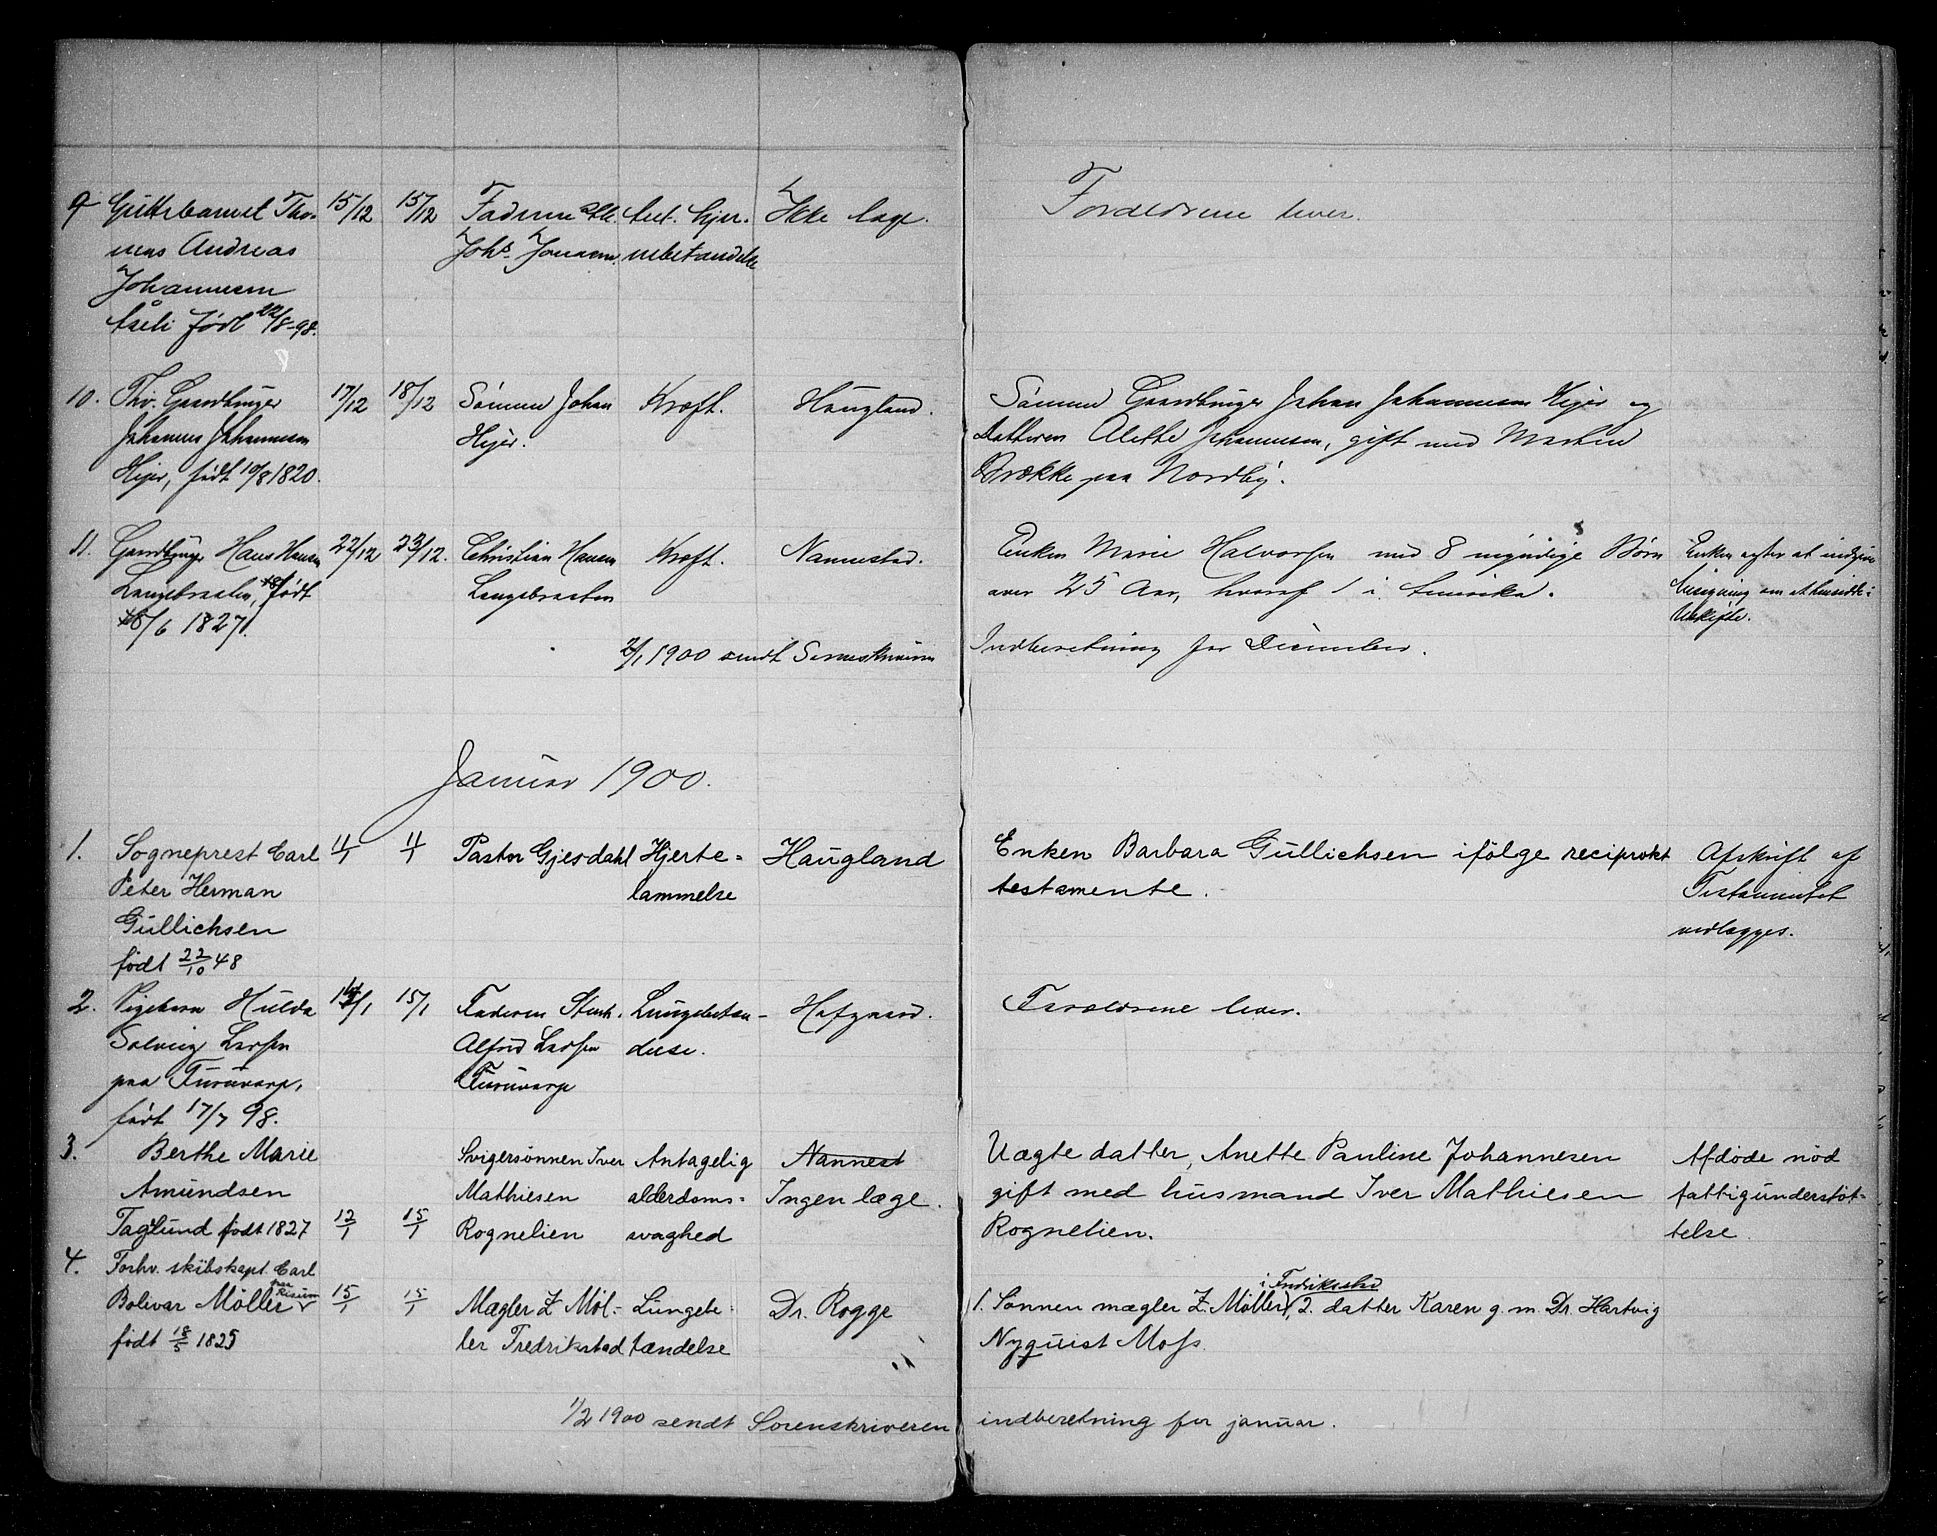 9 Guttebarnet Tho- 15/12 15/12 Faderen Ikke læge. Forældrene lever.
mas Andreas Johs. Jonassen
Johannesen
født 22/8-98.
10. Fhv. Gaardbruger 17/12 18/12 Sønnen Johan Kræft. Haugland. Sønnen Gaardbruger Johan Johannesen og
Johannes Johannesen Datteren Alette Johannesen, gift med Martin
født 10/8 1820. Brække paa Nordby.
11. Gaardbruger Hans Hansen 22/12 23/12. Christian Hansen Kræft. Nannestad. Enken Marie Halvorsen med 8 myndige Børn Enken agter at indgive
født over 25 Aar, hvoraf 1 i Amerika. om at hensidde i
8/6 1827. Uskifte.
2/1 1900 sendt Sorenskriveren Indberetning for December.
Januar 1900.
1. Sogneprest Carl 11/1 11/1 Pastor Gjesdahl Hjerte- Haugland Enken Barbara Gullichsen ifølge reciprokt Afskrift af
Peter Herman lammelse testamente. Testamentet
Gullichsen vedlægges.
født 22/10 48
2. Pigebarn Hulda 14/1 15/1 Faderen Stenh. Lungebetæn- Hafgaard. Forældrene lever.
Solveig Larsen Alfred Larsen delse.
paa Furuvarp, Furuvarp
født 17/7 98.
3. Berthe Marie Svigersønnen Iver Antagelig Nannest Uægte datter, Anette Pauline Johannesen Afdøde nød
Amundsen Mathiesen alderdoms- Ingen læge. gift med husmand Iver Mathiesen fattigunderstøt-
Taglund født 1827 12/1 15/1 Rognelien svaghed Rognelien. telse.
4. Forhv. skibskapt. Carl
Bolivar Møller paa Risum 15/1 15/1 Mægler Z. Møl- Lungebe- Dr. Rogge 1. Sønnen mægler Z. Møller i Fredriksstad, 2. datter Karen g. m. Dr. Hartvig
født 18/5 1825 ler Fredrikstad tændelse Nyquist Moss.
1/2 1900 sendt Sorenskriveren indberetning for januar.